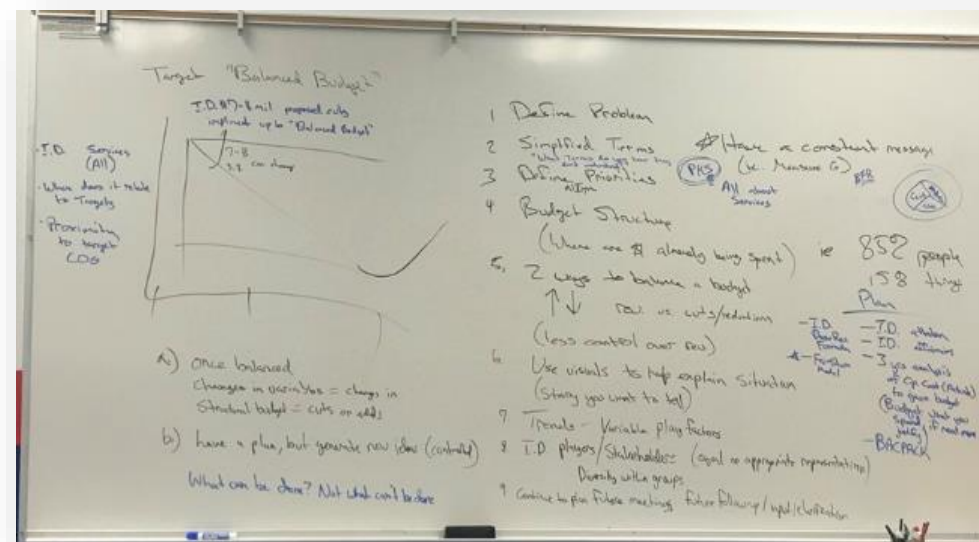 Target "Balanced Budget"
I.D. $7-8 mil proposed cuts
implied up to "Balanced Budget"
- I.D. Services
(All)
- Where does it relate
to Targets
- Proximity
to target
COG
7-8
can change
a) once balanced
Changes in variables = change in
Structural budget = cuts or adds
b) have a plan, but generate new ideas (controlled)
What can be done? Not what can't be done
1 Define Problem
2 Simplified Terms
"What Terms do you hear they
don't understand"
3 Define Priorities
Align
4 Budget Structure
(Where are $ already being spent)
5. 2 ways to balance a budget
rev. vs. cuts/reductions
(less control over rev)
6 Use visuals to help explain situation
(Story you want to tell)
7 Trends - Variable play factors
8 I.D. players/Stakeholders (equal or appropriate representation)
Diversity within groups
9 Continue to plan future meetings future followup/input/clarification
Have a consistent message
(ie. Measure G)
PKS
All about
Services
ie 85% people
15% things
Plan
- I.D.
Formula
- I.D. attrition
- I.D.
- 3 yrs analysis
of Op Cost
to given budget
(Budget what you
spend, if need more
justify)
- BACPACK